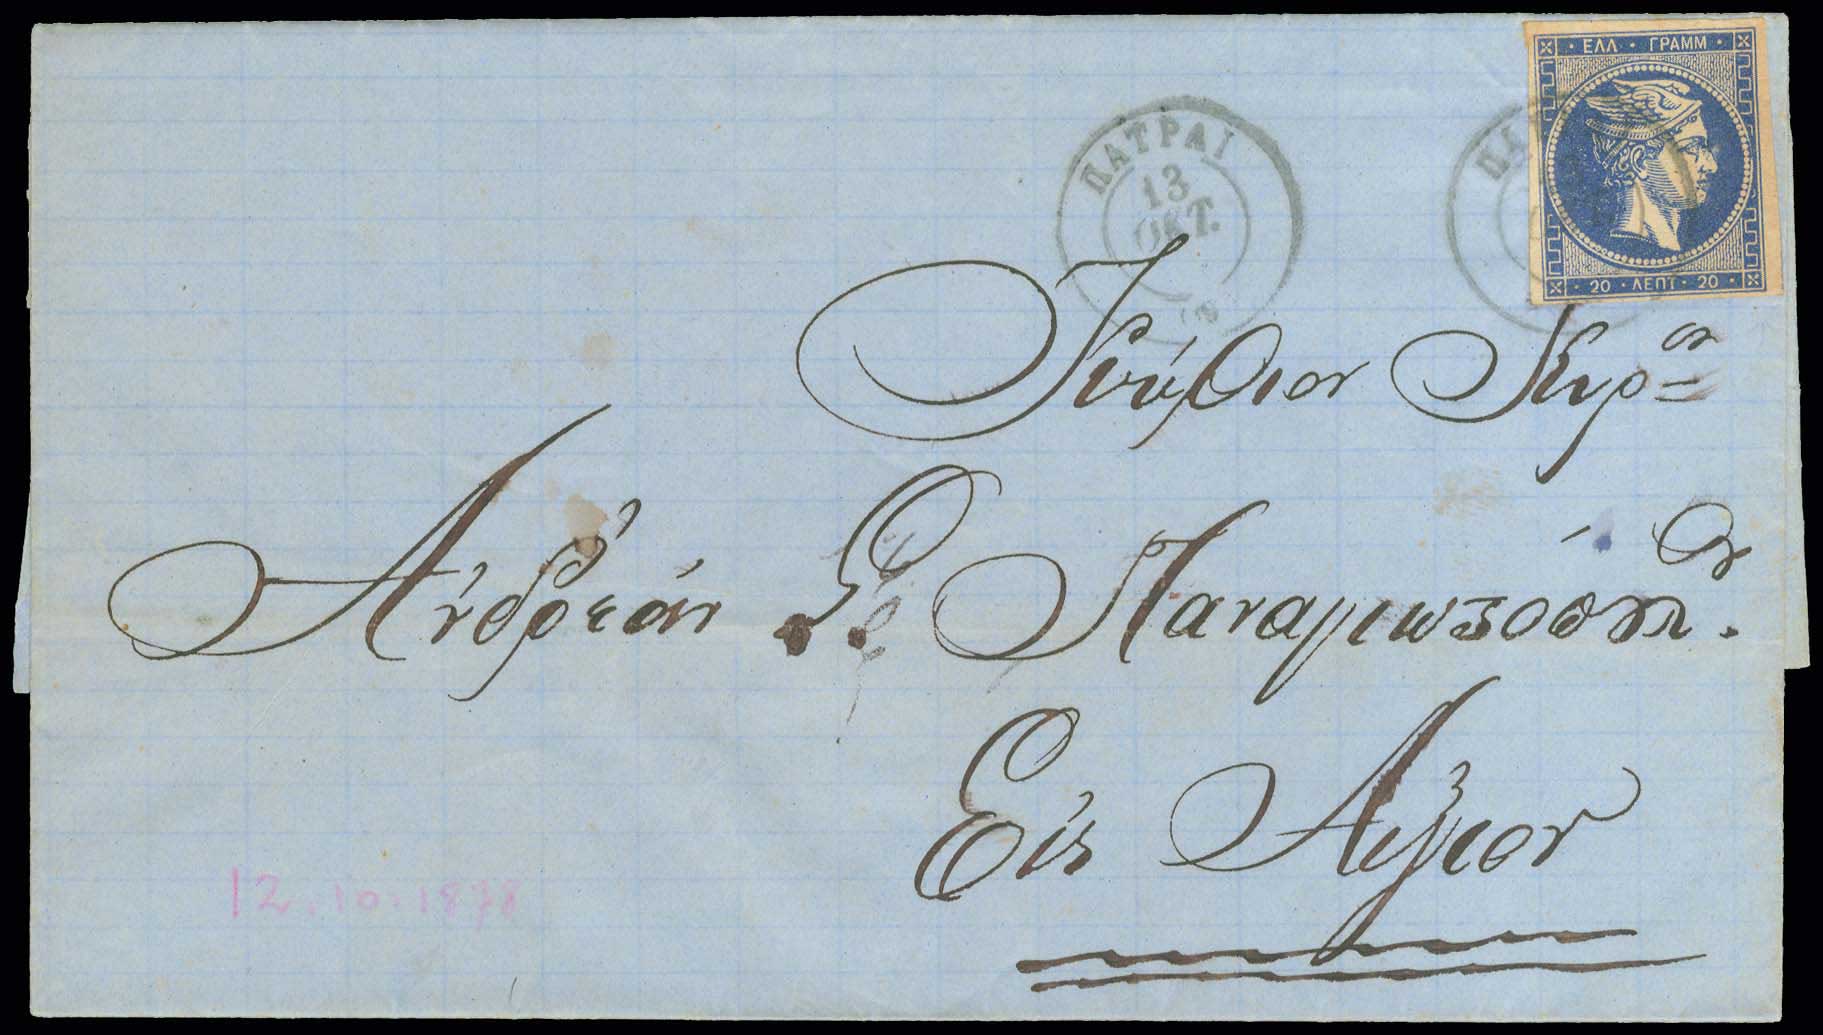 ΕΛΛ · ΓΡΑΜΜ
20 · ΛΕΠΤ · 20
ΠΑΤΡΑΙ
13
ΟΚΤ.
Κύριον Κυρον
Ἀνδρέαν Σ. Παναγιωτόπουλον.
Εἰς Αἴγιον
12.10.1878